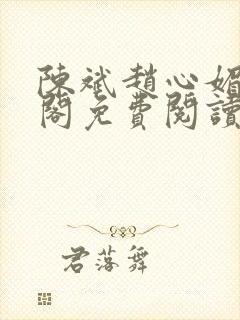 陳斌趙心媚
閣免費閱讀
君落舞